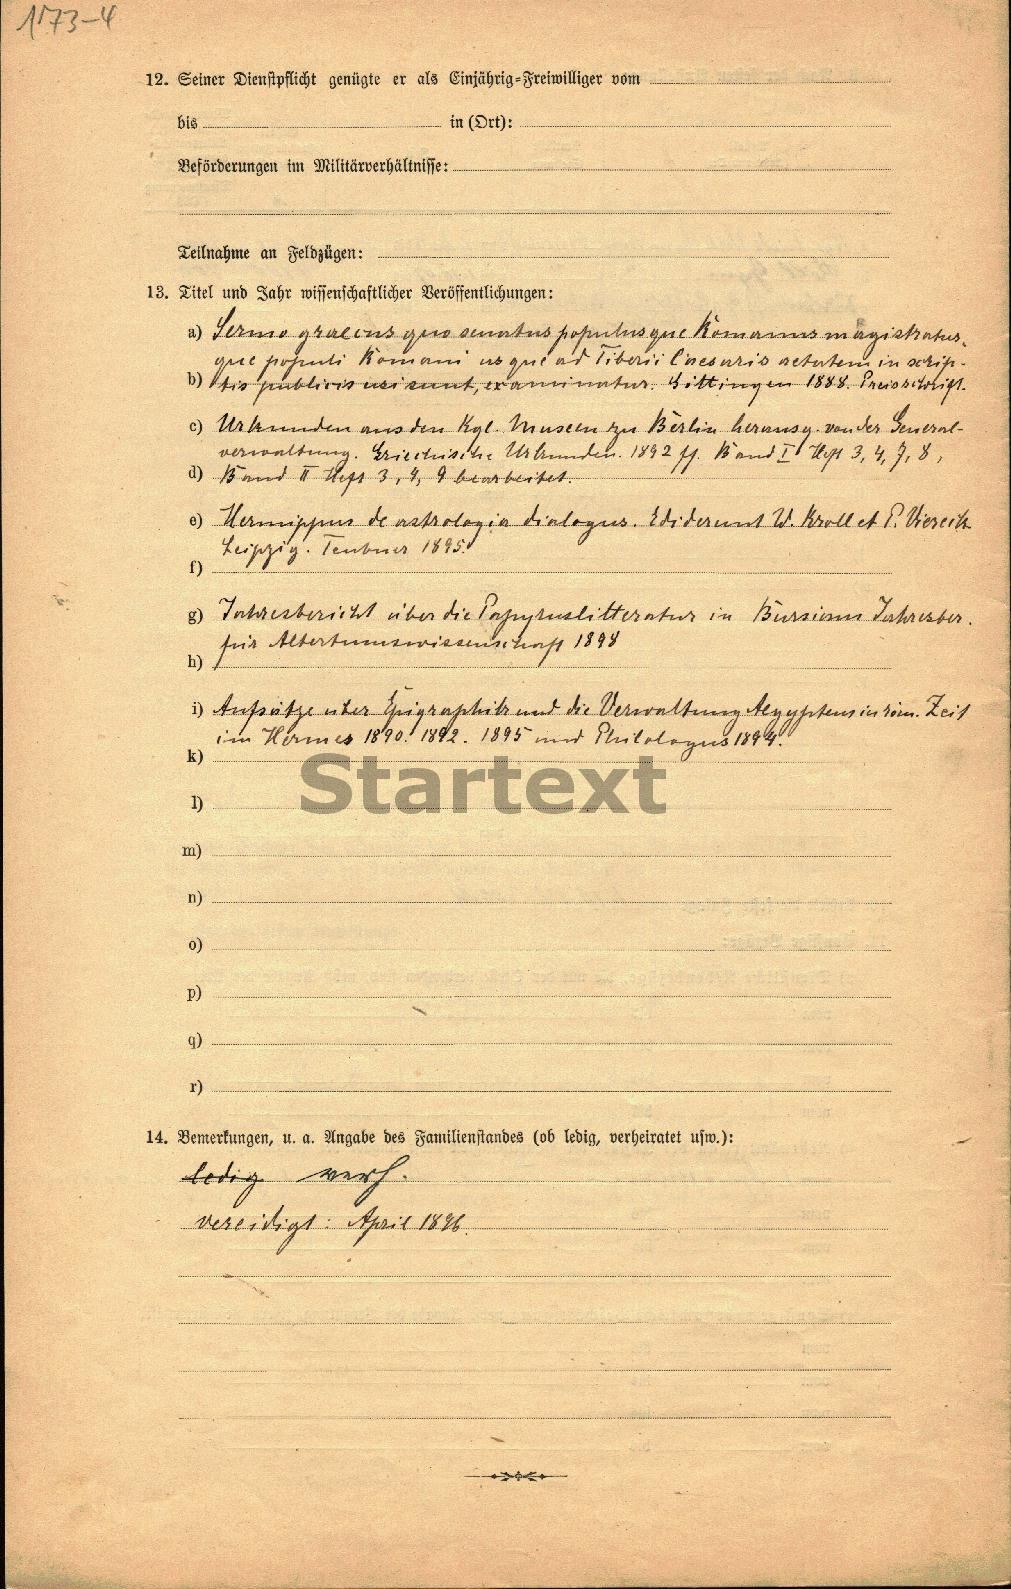 1173-4
12. Seiner Dienstpflicht genügte er als Einjährig-Freiwilliger vom
bis in (Ort):
Beförderungen im Militärverhältnisse:
Teilnahme an Feldzügen:
13. Titel und Jahr wissenschaftlicher Veröffentlichungen:
a) Sermo graecus quo senatus populusque Romanus magistratus-
que populi Romani usque ad Tiberii Caesaris aetatem in scrip-
b) tis publicis usi sunt, examinatur. Göttingen 1888. Preisschrift.
c) Urkunden aus den Kgl. Museen zu Berlin herausg. von der General-
verwaltung. Griechische Urkunden. 1892 ff. Band I Heft 3, 4, 7, 8,
d) Band II Heft 3, 4, 9 bearbeitet.
e) Hermippus de astrologia dialogus. Ediderunt W. Kroll et P. Viereck
Leipzig. Teubner 1895.
f)
g) Jahresbericht über die Papyruslitteratur in Bursians Jahresber.
für Altertumswissenschaft 1898
h)
i) Aufsätze über Epigraphik und die Verwaltung Aegyptens in röm. Zeit
im Hermes 1890. 1892. 1895 und Philologus 1894.
k)
Startext
l)
m)
n)
o)
p)
q)
r)
14. Bemerkungen, u. a. Angabe des Familienstandes (ob ledig, verheiratet usw.):
ledig verh.
vereidigt: April 1896.